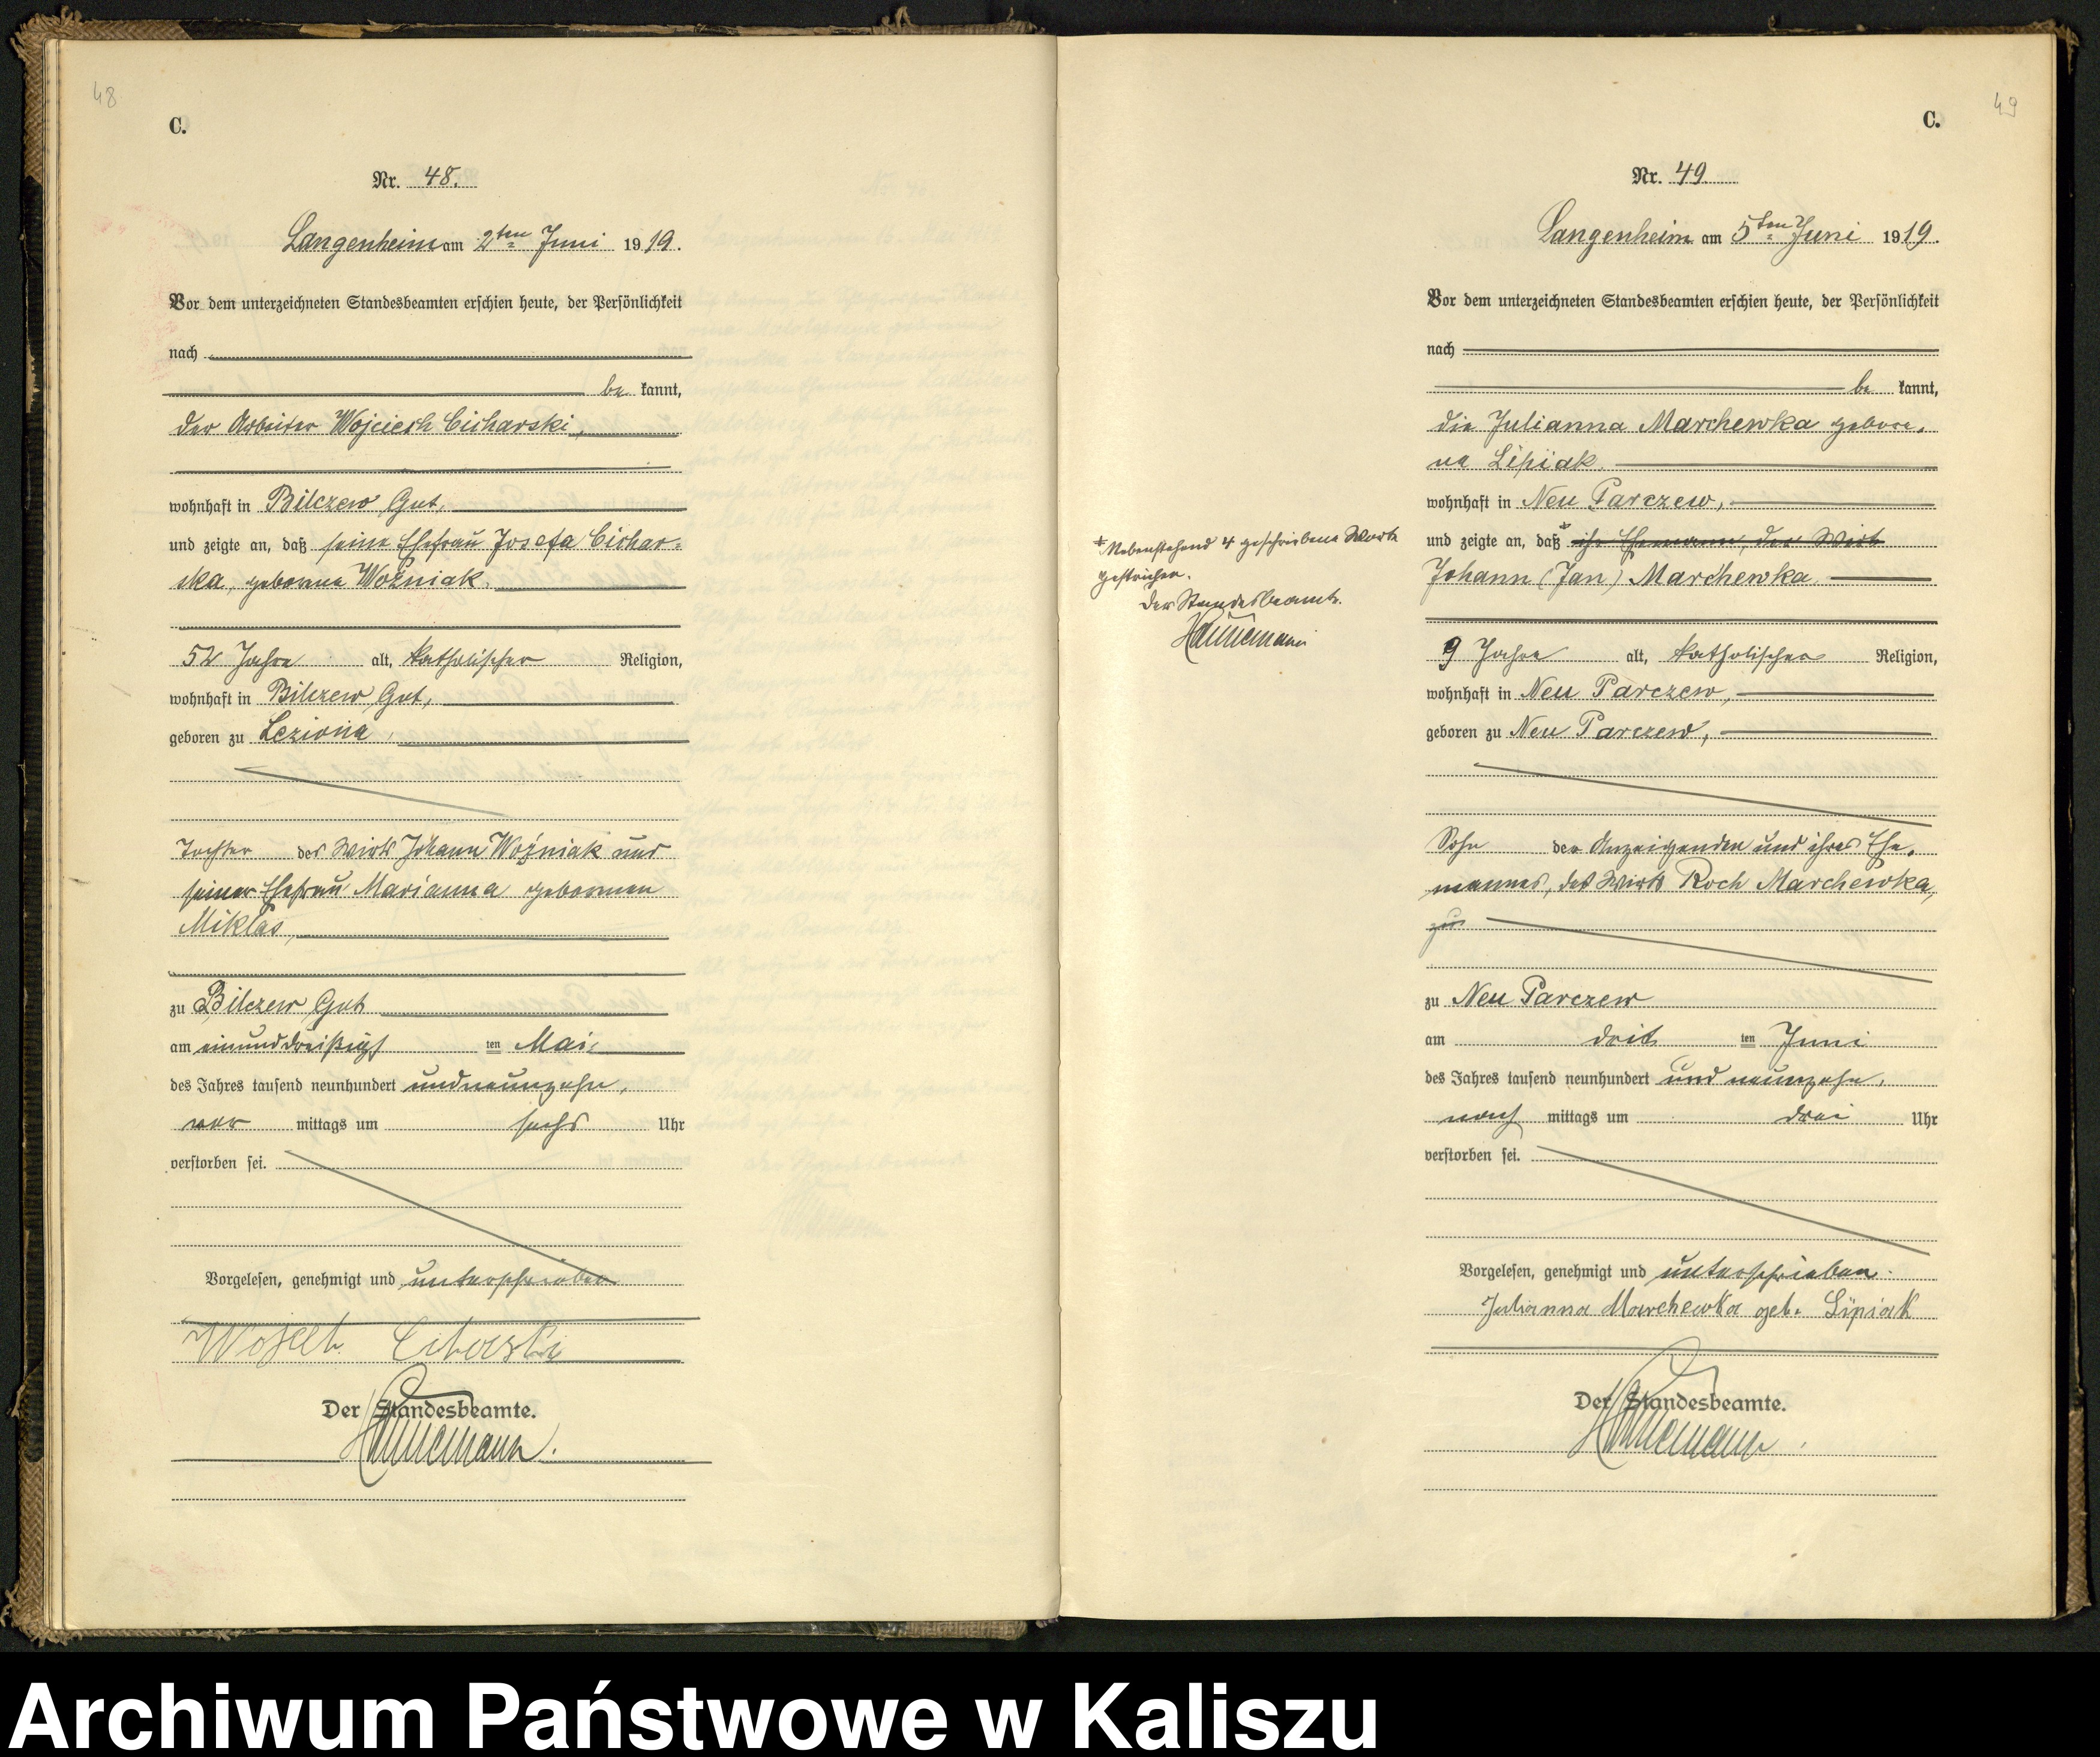 48
C.
Nr. 48.
Langenheim am 2ten Juni 1919.
Vor dem unterzeichneten Standesbeamten erschien heute, der Persönlichkeit
nach
be kannt,
der Arbeiter Wojciech Cicharski,
wohnhaft in Bilczew Gut,
und zeigte an, daß seine Ehefrau Josefa Cichar=
ska, geborene Woźniak,
52 Jahre alt, katholischer Religion,
wohnhaft in Bilczew Gut,
geboren zu Leziona,
Tochter des Wirts Johann Woźniak und
seiner Ehefrau Marianna geborenen
Miklas,
zu Bilczew Gut
am einunddreißigs ten Mai
des Jahres tausend neunhundert undneunzehn,
vor mittags um sechs Uhr
verstorben sei.
Vorgelesen, genehmigt und unterschrieben
WojcehCiharski
Der Standesbeamte.
Hannemann.
49
C.
Nr. 49
Langenheim am 5ten Juni 1919.
Vor dem unterzeichneten Standesbeamten erschien heute, der Persönlichkeit
nach
be kannt,
die Julianna Marchewka gebore,
ne Lipiak
wohnhaft in Neu Parczew,
und zeigte an, daß ihr Ehemann, der Wirt
Johann (Jan) Marchewka
9 Jahre alt, katholischer Religion,
wohnhaft in Neu Parczew,
geboren zu Neu Parczew,
Sohn der Anzeigenden und ihres Ehe,
mannes, des Wirts Roch Marchewka,
zu
zu Neu Parczew
am drit ten Juni
des Jahres tausend neunhundert und neunzehn,
nach mittags um drei Uhr
verstorben sei.
Vorgelesen, genehmigt und unterschrieben.
Julianna Marchewka geb. Lipiak
Der Standesbeamte.
Hannemann
Nebenstehend 4 geschriebene Worte
gestrichen.
Der Standesbeamte.
Hannemann
Archiwum Państwowe w Kaliszu